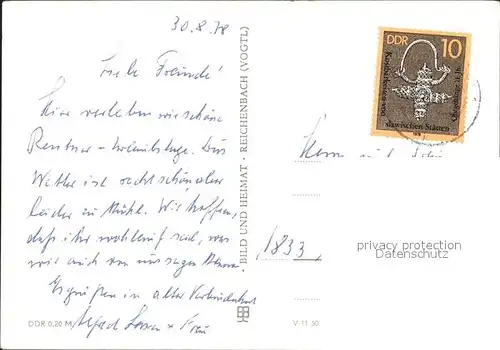 30.8.78
Liebe Freunde!
Hier verleben wir schöne
Rentner-Urlaubstage. Das
Wetter ist recht schön, aber
leider zu kühl. Wir hoffen,
daß ihr wohlauf seid, was
wir auch von uns sagen können.
Es grüßen in alter Verbundenheit
u. Frau
DDR 0,20 M
BILD UND HEIMAT · REICHENBACH (VOGTL)
V 11 50
DDR 10
slawischen Stätten
Herrn und
1833
privacy protection
Datenschutz